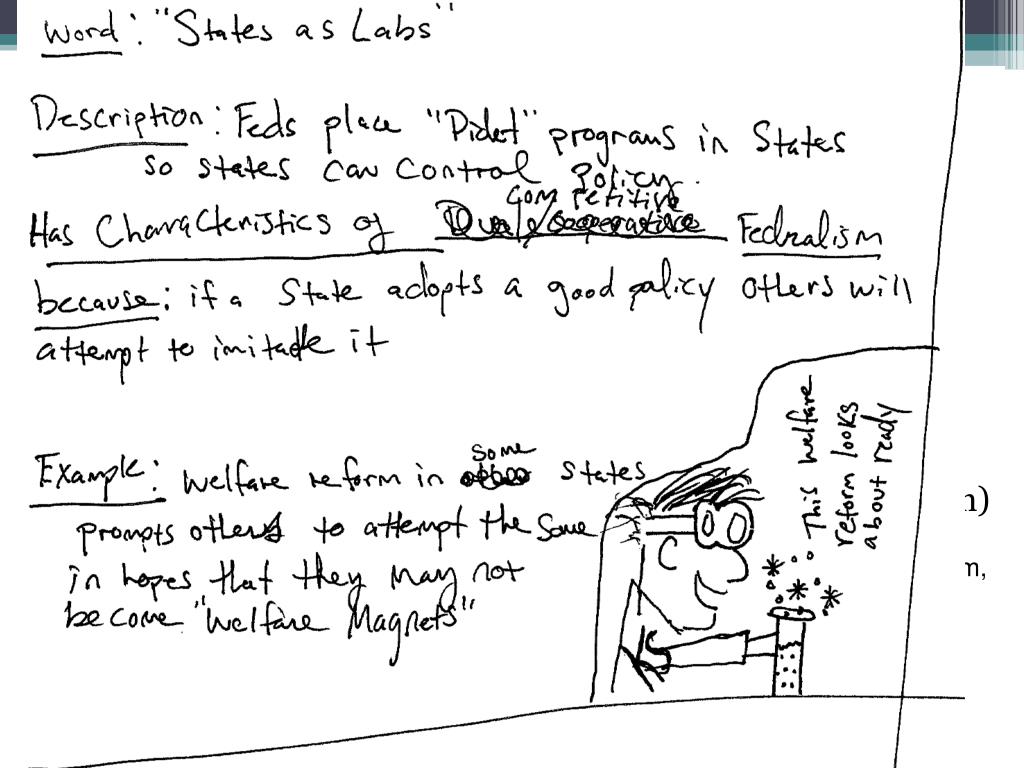 Word: "States as Labs"
Description: Feds place "Pidot" programs in States
so states can control Policy.
Competitive
Has Characteristics of Dual/cooperative Federalism
because: if a State adopts a good policy others will
attempt to imitate it
Example: Welfare reform in some States
prompts others to attempt the same
in hopes that they may not
become "Welfare Magnets"
This welfare
reform looks
about ready
1)
n,